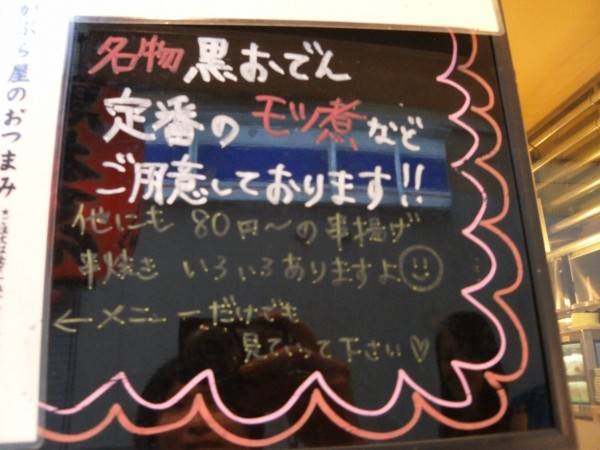 名物 黒おでん
定番の モツ煮など
ご用意しております!!
他にも 80円〜の串揚げ
串焼き いろいろありますよ☺
←メニューだけでも
見ていって下さい♡
かぶら屋のおつまみ